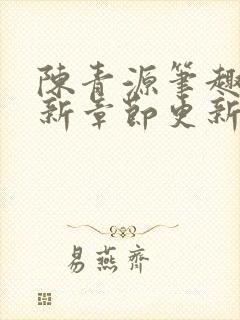 陳青源筆趣
新章節更新
易燕齊